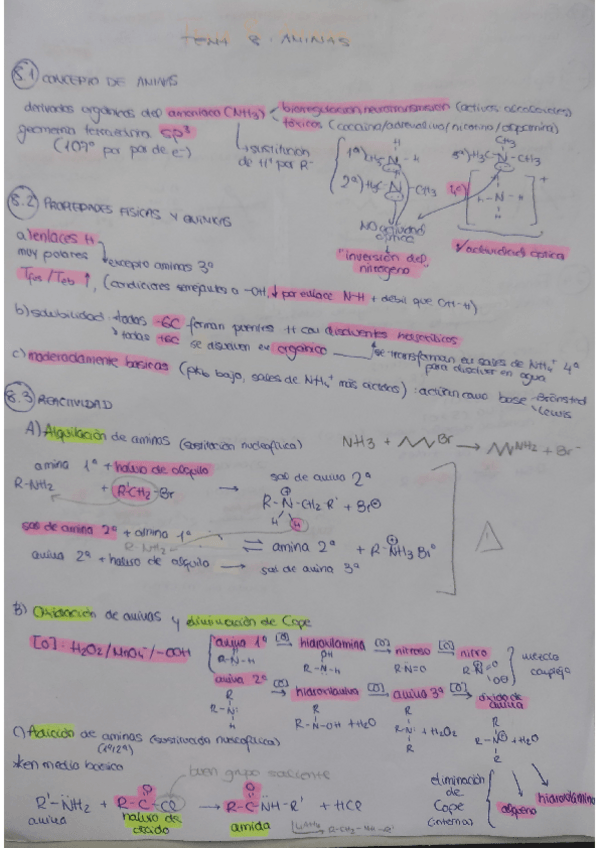 TEMA 8: AMINAS
8.1 CONCEPTO DE AMINAS
derivados orgánicos del amoniaco (NH3) biorregulación neurotransmisión (activos
tóxicos (cocaína/adrenalina/nicotina/
geometría tetraédrica sp³
(107° por par de e-)
sustitución
de H por R-
1ª) H3C-N-H
H
3ª) H3C-N-CH3
CH3
2ª) H3C-N-CH3
H
4ª)
H-N-H
+
NO actividad
óptica
"inversión del
nitrógeno
√ actividad óptica
8.2 PROPIEDADES FÍSICAS Y QUÍMICAS
a) enlaces H
muy polares excepto aminas 3ª
Tfus/Teb ↑, (condiciones semejantes a -OH, ↓ por enlace N-H + débil que OH-H)
b) solubilidad: todas -6C forman puentes H con disolventes
todas +6C se disuelven en orgánico
se transforman en sales de NH4+ 4ª
para disolver en agua
c) moderadamente básicas (pKb bajo, sales de NH4+ más ácidas): actúan como base Brönsted
Lewis
8.3 REACTIVIDAD
A) Alquilación de aminas (sustitución nucleofílica)
NH3 + Br → NH2 + Br-
amina 1ª + haluro de alquilo sal de amina 2ª
R-NH2 + R'CH2-Br → R-N-CH2-R' + Br⊖
H H
sal de amina 2ª + amina 1ª
R-NH2 ⇌ amina 2ª + R-NH3 Br⊖
amina 2ª + haluro de alquilo → sal de amina 3ª
B) Oxidación de aminas y eliminación de Cope
[O]: H2O2/MnO4-/-OOH
amina 1ª [O]→ hidroxilamina [O]→ nitroso [O]→ nitro
R-N-H R-N-H R-N=O
OH
mezcla
compleja
amina 2ª [O]→ hidroxilamina [O]→ amina 3ª [O]→ óxido de
amina
R-N: R-N-OH + H2O R-N: + H2O2 R-N + H2O
C) Adición de aminas (sustitución nucleofílica)
(1ª/2ª)
*en medio básico
buen grupo saliente
R'-NH2 + R-C-Cl → R-C-NH-R' + HCl
O O
amina haluro de
ácido
amida
LiAlH4 → R-CH2-NH-R'
eliminación
de
Cope
(interna)
alqueno
hidroxilamina